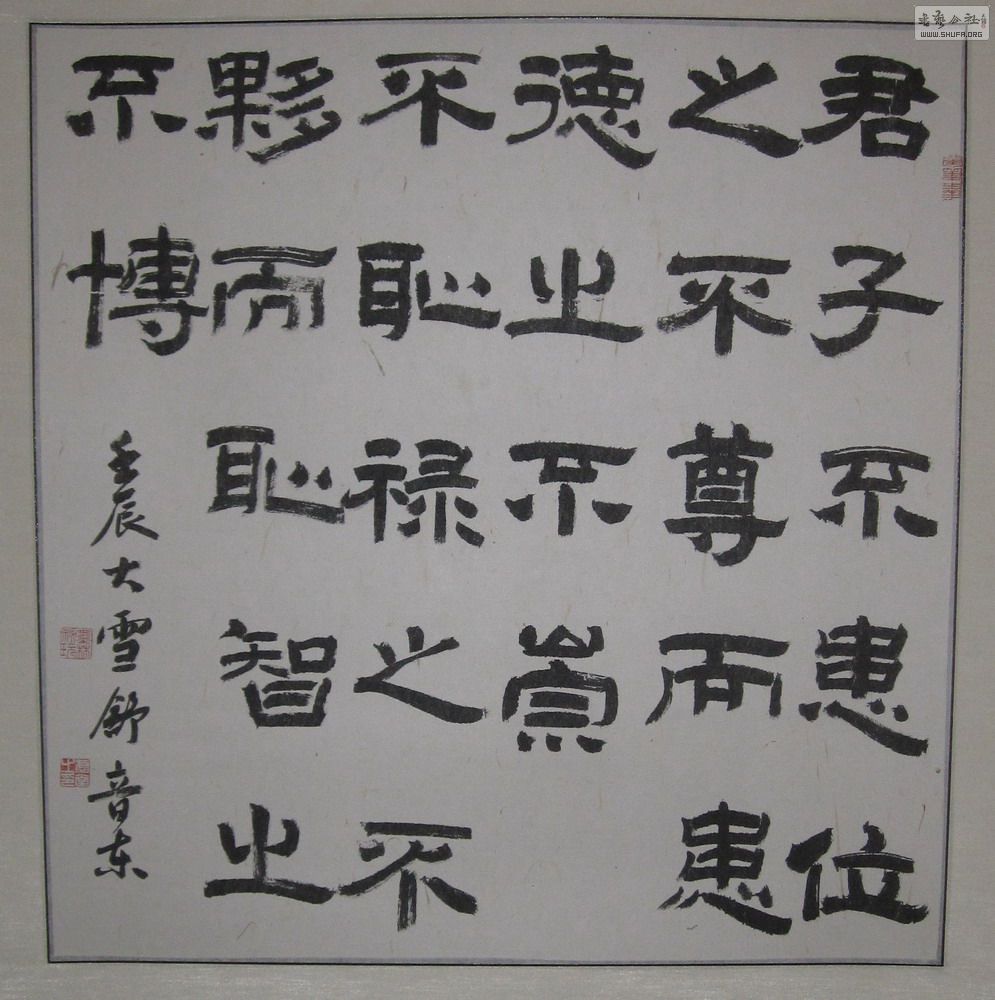 君子不患位
之不尊而患
德之不崇
不恥禄之不
夥而恥智之
不博
壬辰大雪舒音东
書藝公社
WWW.SHUFA.ORG